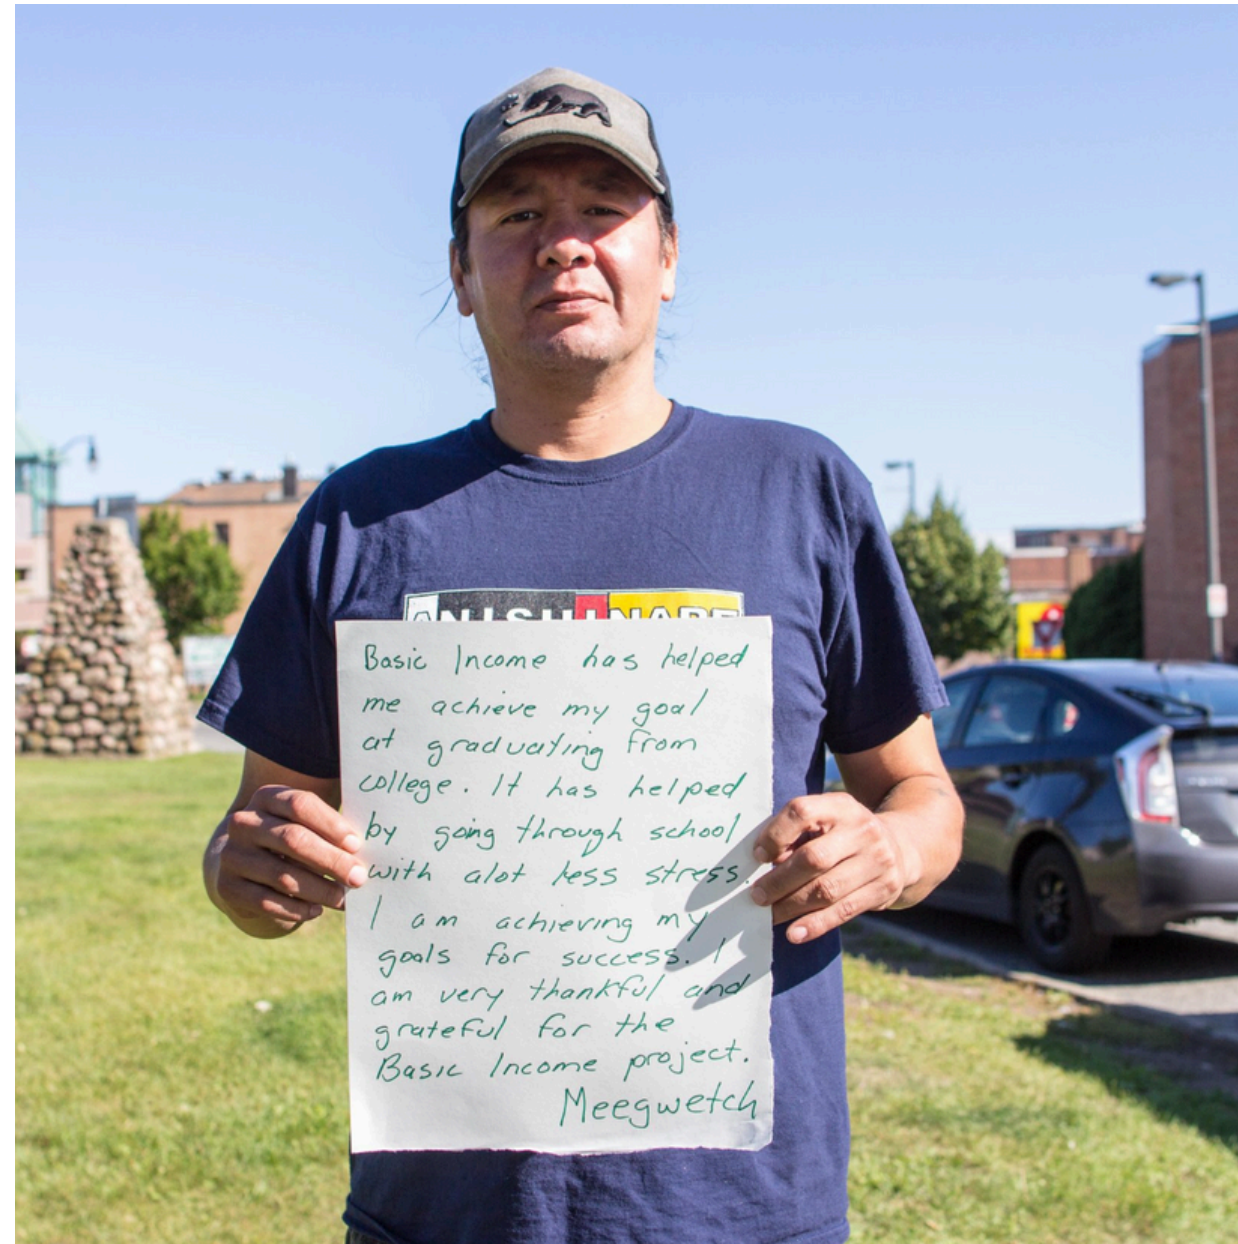 ANISHINABE
Basic Income has helped
me achieve my goal
at graduating from
college. It has helped
by going through school
with alot less stress.
I am achieving my
goals for success. I
am very thankful and
grateful for the
Basic Income project.
Meegwetch